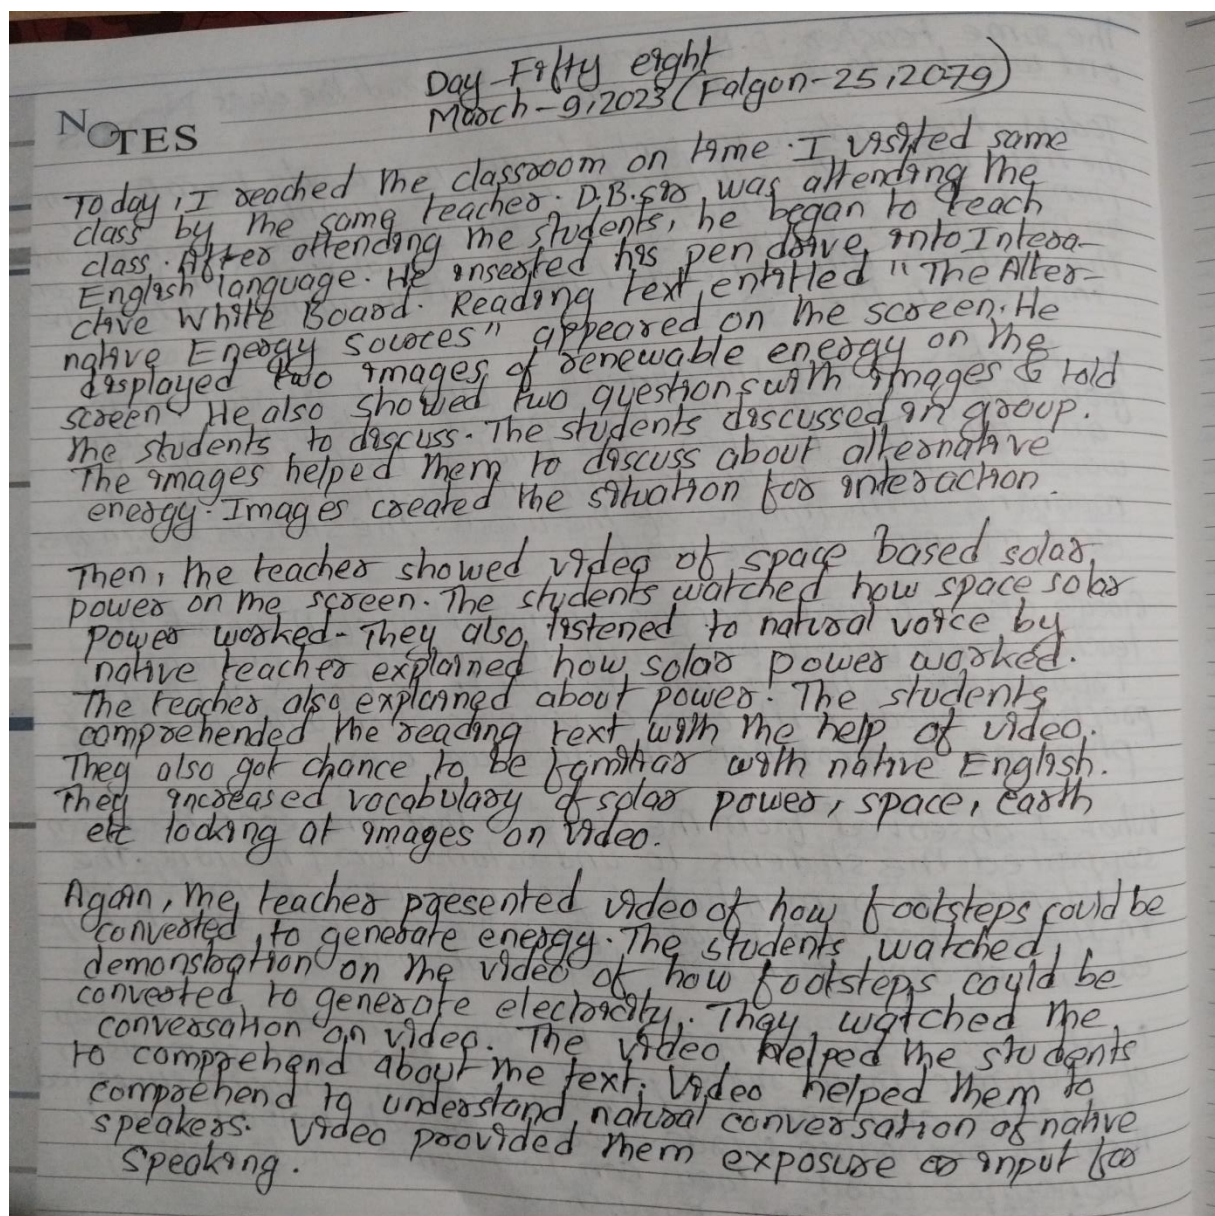 Day-Fifty eight
March-9,2023 (Falgun-25,2079)
NOTES
Today, I reached the classroom on time. I visited same
class by the same teacher. D.B.sir was attending the
class. After attending the students, he began to teach
English language. He inserted his pen drive into Intera-
ctive White Board. Reading text entitled "The Alter-
native Energy Sources" appeared on the screen. He
displayed two images of renewable energy on the
screen. He also showed two questions with images & told
the students to discuss. The students discussed in group.
The images helped them to discuss about alternative
energy. Images created the situation for interaction.
Then, the teacher showed video of space based solar
power on the screen. The students watched how space solar
power worked. They also listened to natural voice by
native teacher explained how solar power worked.
The teacher also explained about power. The students
comprehended the reading text with the help of video.
They also got chance to be familiar with native English.
They increased vocabulary of solar power, space, earth
etc looking at images on video.
Again, the teacher presented video of how footsteps could be
converted to generate energy. The students watched
demonstration on the video of how footsteps could be
converted to generate electricity. They watched the
conversation on video. The video helped the students
to comprehend about the text. Video helped them to
comprehend to understand natural conversation of native
speakers. Video provided them exposure or input for
speaking.